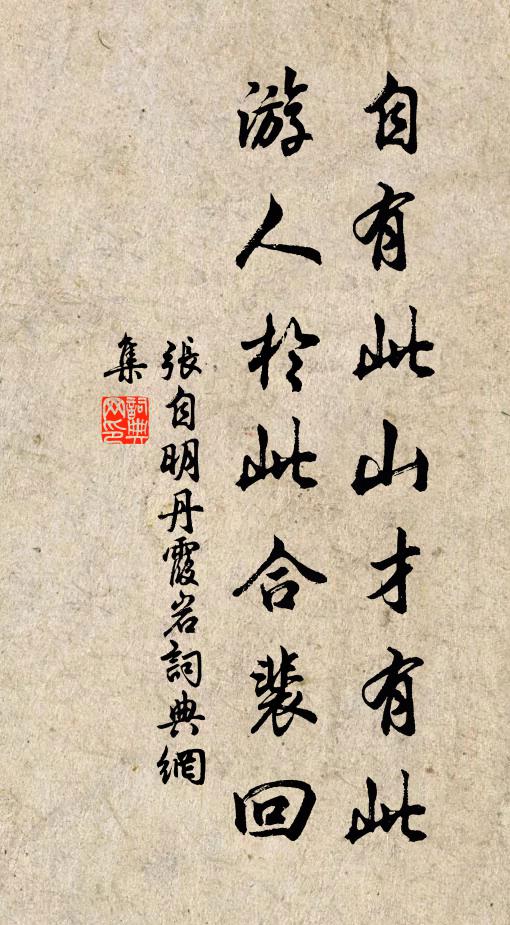 自有此山才有此
游人於此合裴回
張自明丹霞岩詞典網
集
詞典
网印